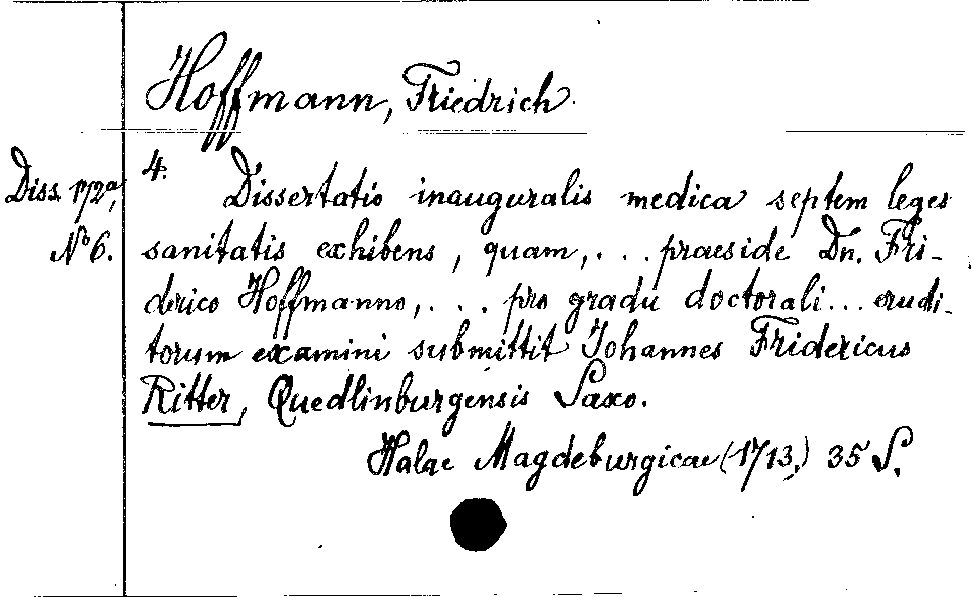 Hoffmann, Friedrich.
Diss. 172a,
No 6.
4.
Dissertatio inauguralis medica septem leges
sanitatis exhibens, quam,... praeside Dn. Fri-
derico Hoffmanno,... pro gradu doctorali... erudi-
torum examini submittit Johannes Fridericus
Ritter, Quedlinburgensis Saxo.
Halae Magdeburgicae (1713.) 35 S.